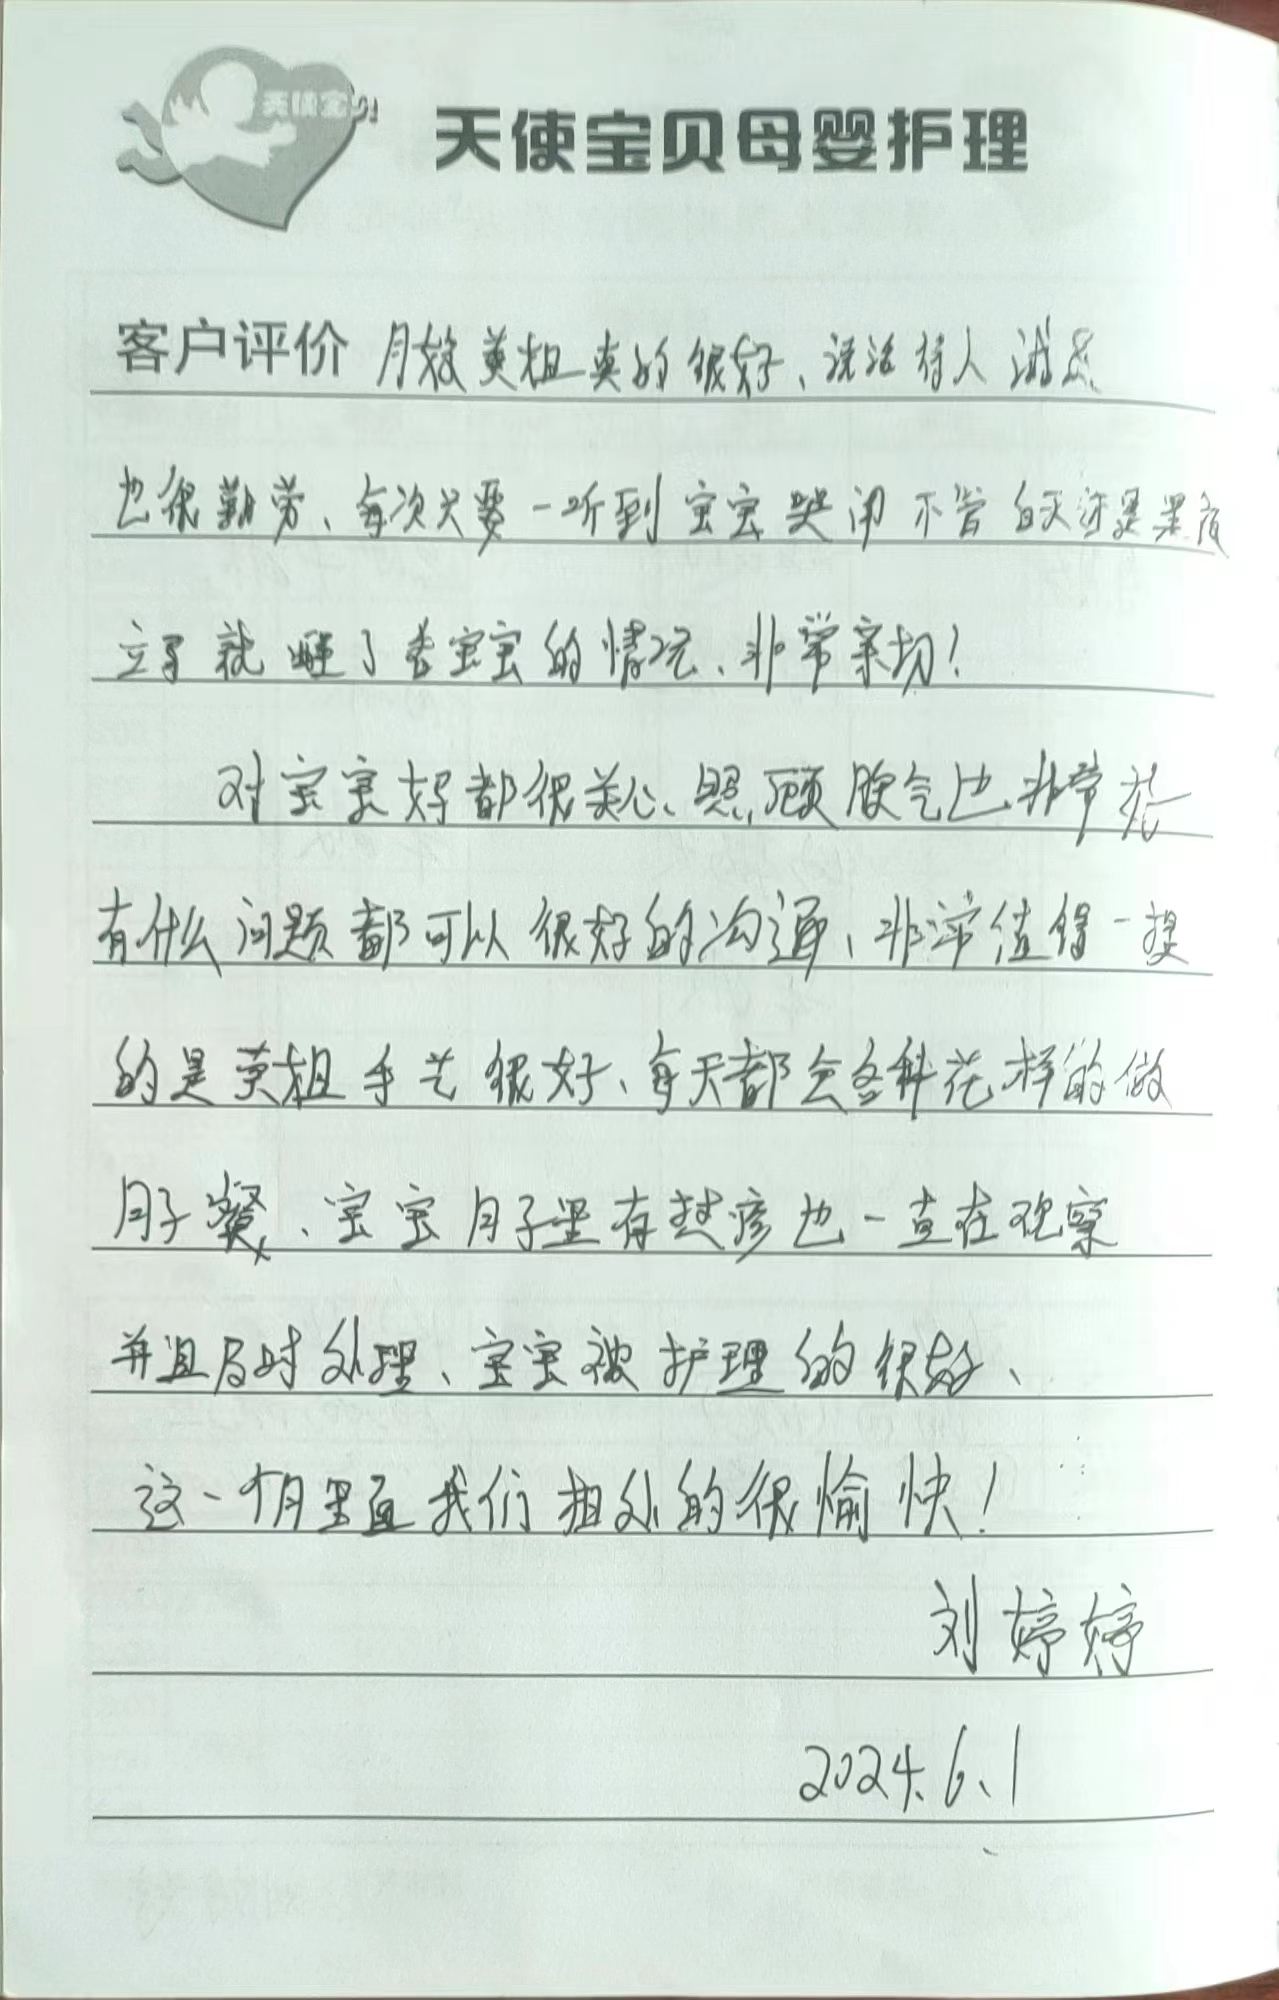 天使宝贝
天使宝贝母婴护理
客户评价 月嫂英姐真的很好、说话待人诚恳
也很勤劳、每次只要一听到宝宝哭闹不管白天还是黑夜
立马就醒了看宝宝的情况、非常亲切!
对宝宝好都很关心、照顾脾气也非常好
有什么问题都可以很好的沟通、非常值得一提
的是英姐手艺很好、每天都会各种花样的做
月子餐、宝宝月子里有热疹也一直在观察
并且及时处理、宝宝被护理的很好、
这一个月里面我们相处的很愉快!
刘婷婷
2024.6.1